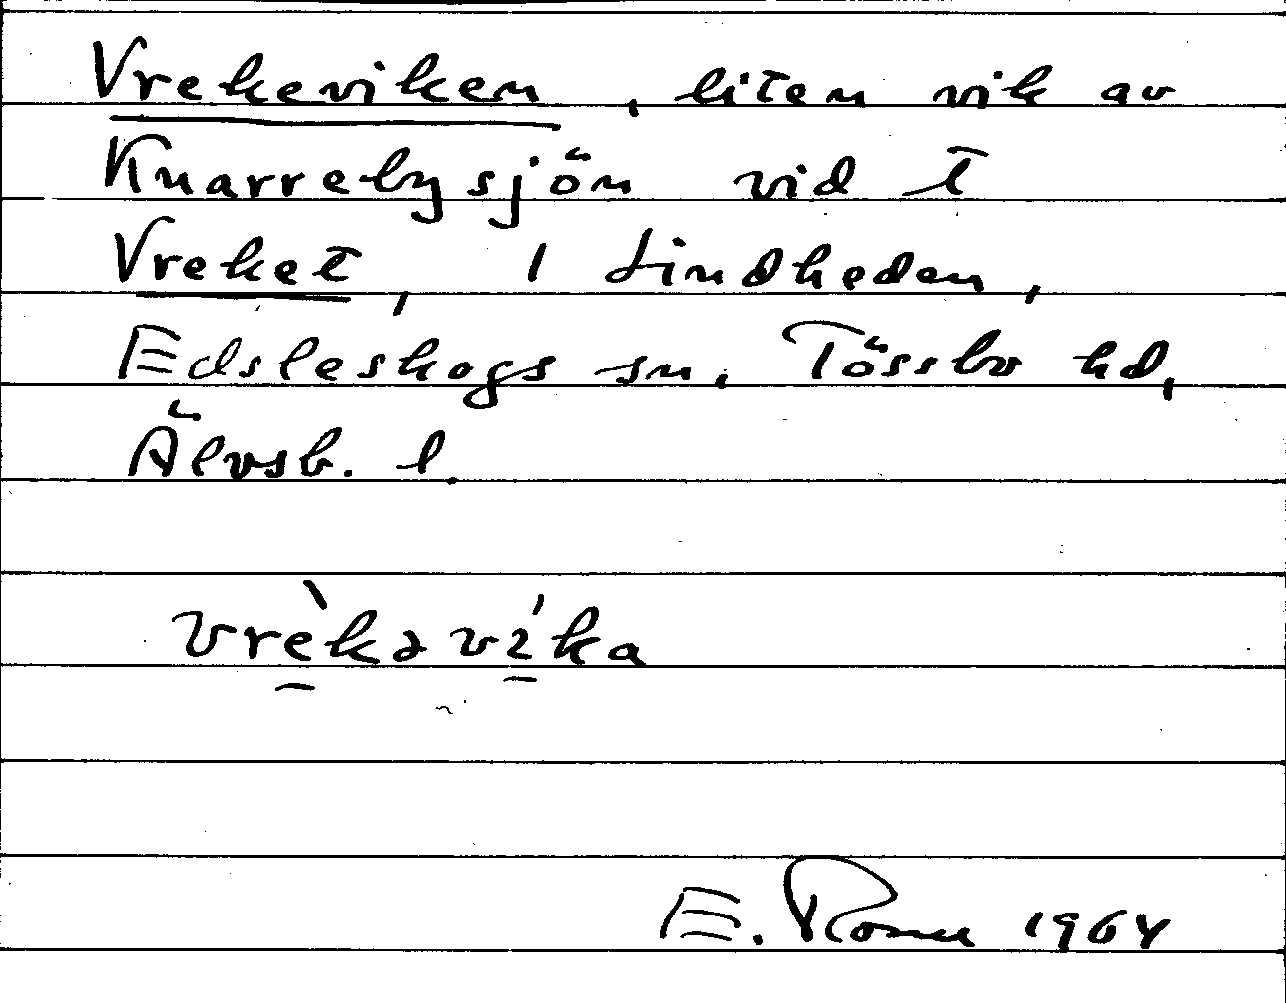 Vrekeviken, liten vik av
Knarrebysjön vid t
Vreket, 1 Lindheden,
Edsleskogs sn. Tössbo hd,
Älvsb. l.
vrèkəvíka
E. 1964